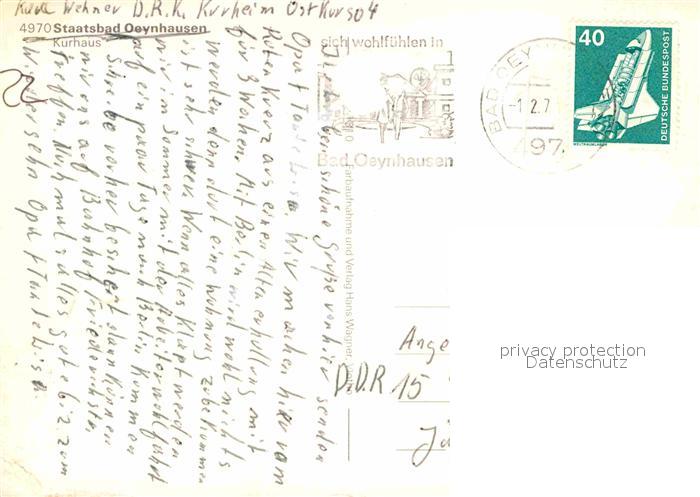 Kurt Wehner D.R.K. Kurheim Ostkorso 4
4970 Staatsbad Oeynhausen
Kurhaus
22
sich wohlfühlen in
Bad Oeynhausen
BAD OEY
-1.2.7
497
40
DEUTSCHE BUNDESPOST
WELTRAUMLABOR
schöne Grüße von hier senden
Opa + Tante Lisa. Wir machen hier vom
Roten Kreuz aus einen Alterserfüllung mit
für 3 Wochen. Mit Berlin wird wohl nichts
werden denn dort eine Wohnung zu bekommen
ist sehr schwer. Wenn alles klapt werden
wir im Sommer mit der Arbeiterwohlfahrt
auf ein paar Tage nach Berlin kommen
Schreibe vorher bescheit dann können
wir uns auf Bahnhof Friedrichstr.
treffen. Noch mals alles gute bis zum
Wiedersehn Opa + Tante Lisa.
Farbaufnahme und Verlag Hans Wagner
Ange
D.D.R 15
privacy protection
Datenschutz